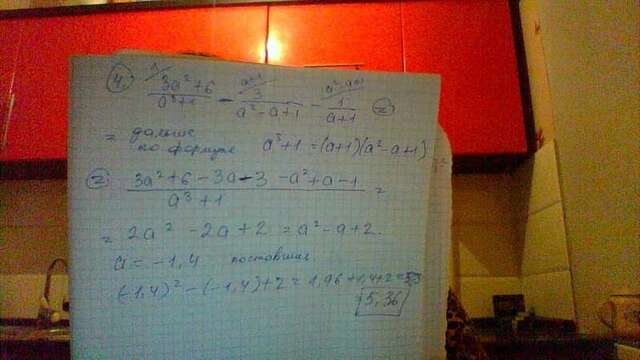 4. (3a²+6)/(a³+1) - 3/(a²-a+1) - 1/(a+1) =
= дальше
по формуле a³+1=(a+1)(a²-a+1)
= (3a²+6-3a-3-a²+a-1)/(a³+1) =
= 2a²-2a+2 = a²-a+2.
a = -1,4 поставим
(-1,4)²-(-1,4)+2 = 1,96+1,4+2=
5,36